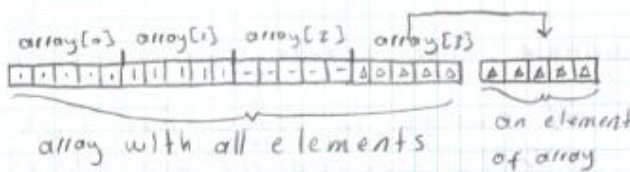 array[0] array[1] array[2] array[3]
array with all elements
an element
of array